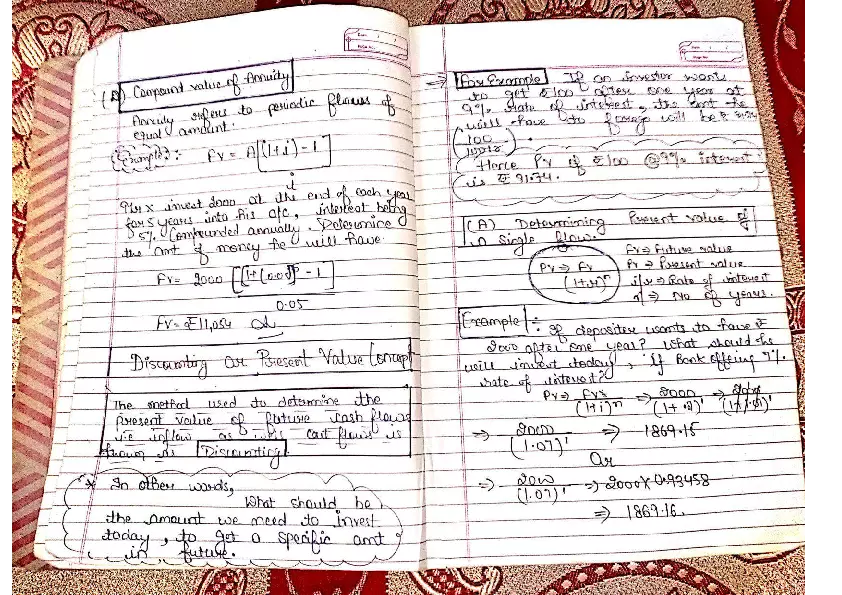 (B) Compound value of Annuity
Annuity refers to periodic flows of
equal amount.
Example: FV = A[(1+i) - 1]
i
Mr X invest 2000 at the end of each year
for 5 years into his a/c, interest being
5% Compounded annually. Determine
the amt of money he will have
FV = 2000 [(1+(0.05)) - 1]
0.05
FV = ₹11,054
Discounting or Present Value Concept
The method used to determine the
present value of future cash flows
inflow as cash flows is
known as Discounting.
* In other words,
What should be
the amount we need to invest
today, to get a specific amt
in future.
For Example If an investor wants
to get ₹100 after one year at
9% rate of interest, the amt he
will have to forego will be ₹
100
Hence PV of ₹100 @9% interest
is ₹ 91.74.
(A) Determining Present value of
a Single flow.
PV ⇒ FV
(1+r)ⁿ
FV ⇒ Future value
PV ⇒ Present value
i/r ⇒ Rate of interest
n ⇒ No of years.
Example: If depositer wants to have ₹
2000 after one year? What should he
will invest today, if Bank offering 7%
rate of interest?
PV ⇒ FV ⇒ 2000 ⇒
(1+i)ⁿ
⇒ 2000 ⇒ 1869.15
(1.07)¹
Or
⇒ 2000 ⇒ 2000 × 0.93458
(1.07)¹
⇒ 1869.16.